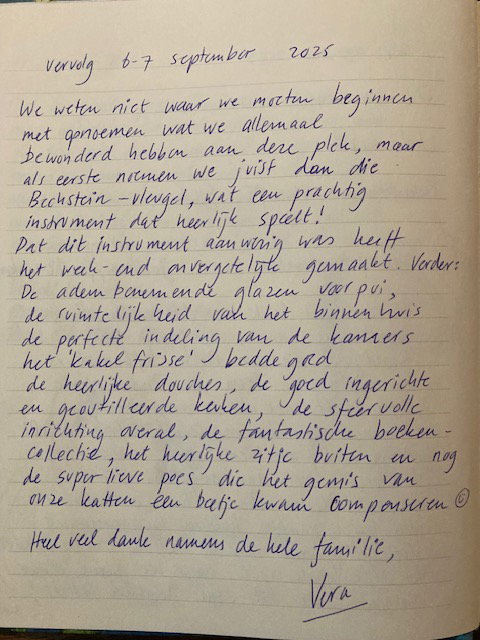 vervolg 6-7 september 2025
We weten niet waar we moeten beginnen
met opnoemen wat we allemaal
bewonderd hebben aan deze plek, maar
als eerste noemen we juist dan die
Bechstein-vleugel, wat een prachtig
instrument dat heerlijk speelt!
Dat dit instrument aanwezig was heeft
het week-end onvergetelijk gemaakt. Verder:
De adembenemende glazen voorpui,
de ruimtelijkheid van het binnenhuis
de perfecte indeling van de kamers
het 'kakelfrisse' beddegoed
de heerlijke douches, de goed ingerichte
en geoutilleerde keuken, de sfeervolle
inrichting overal, de fantastische boeken-
collectie, het heerlijke zitje buiten en nog
de superlieve poes die het gemis van
onze katten een beetje kwam compenseren ☺
Heel veel dank namens de hele familie,
Vera